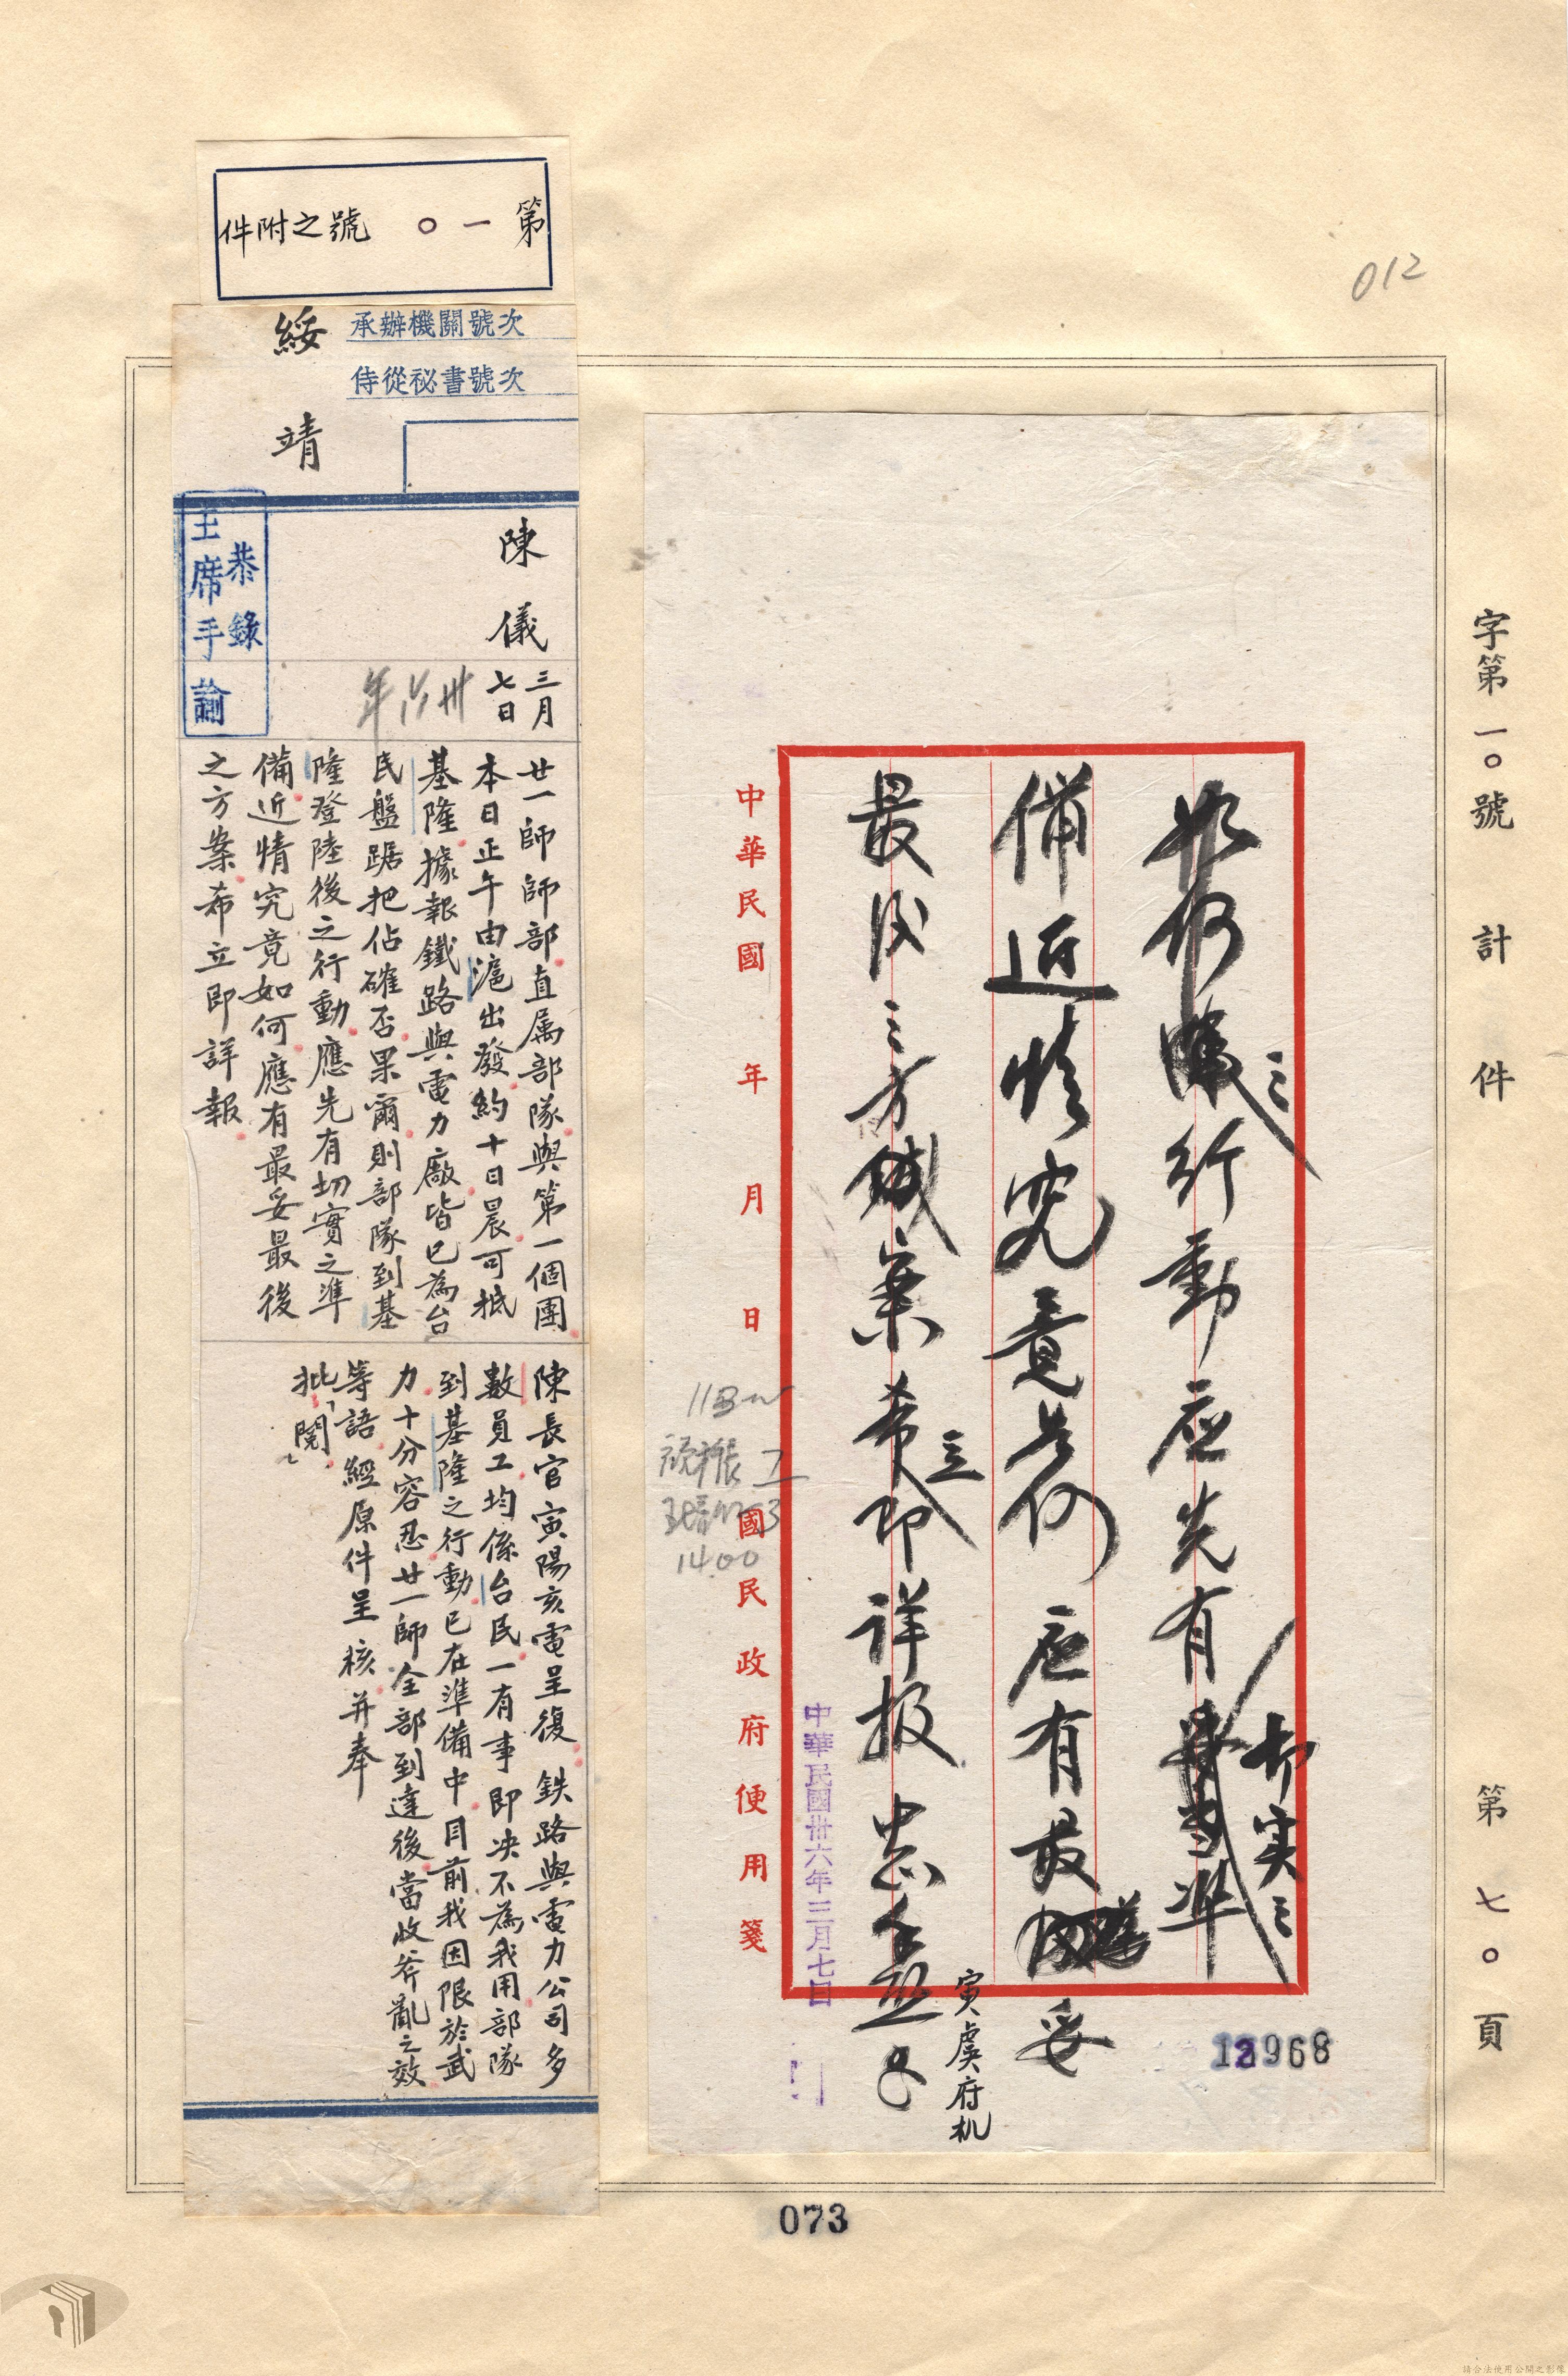 012
字第一〇號 計 件 第七〇頁
如何 之行動应先有切实之準
備近情究竟若何应有最妥
最後之方案希立即详报 中正
寅虞府机
13968
中華民國卅六年三月七日
中華民國 年 月 日 國民政府便用箋
14.00
第一〇號之附件
承辦機關號次
侍從秘書號次
綏靖
陳儀
三月
七日
卅六年
恭錄
主席手諭
廿一師師部直属部隊與第一個團
本日正午由滬出發約十日晨可抵
基隆據報鐵路與電力廠皆已為台
民盤踞把佔確否果爾則部隊到基
隆登陸後之行動應先有切實之準
備近情究竟如何應有最妥最後
之方案希立即詳報
陳長官寅陽亥電呈復鉄路與電力公司多
數員工均係台民一有事即決不為我用部隊
到基隆之行動已在準備中目前我因限於武
力十分容忍廿一師全部到達後當收斧亂之效
等語經原件呈核并奉
批「閱」
073
請合法使用公開之影像